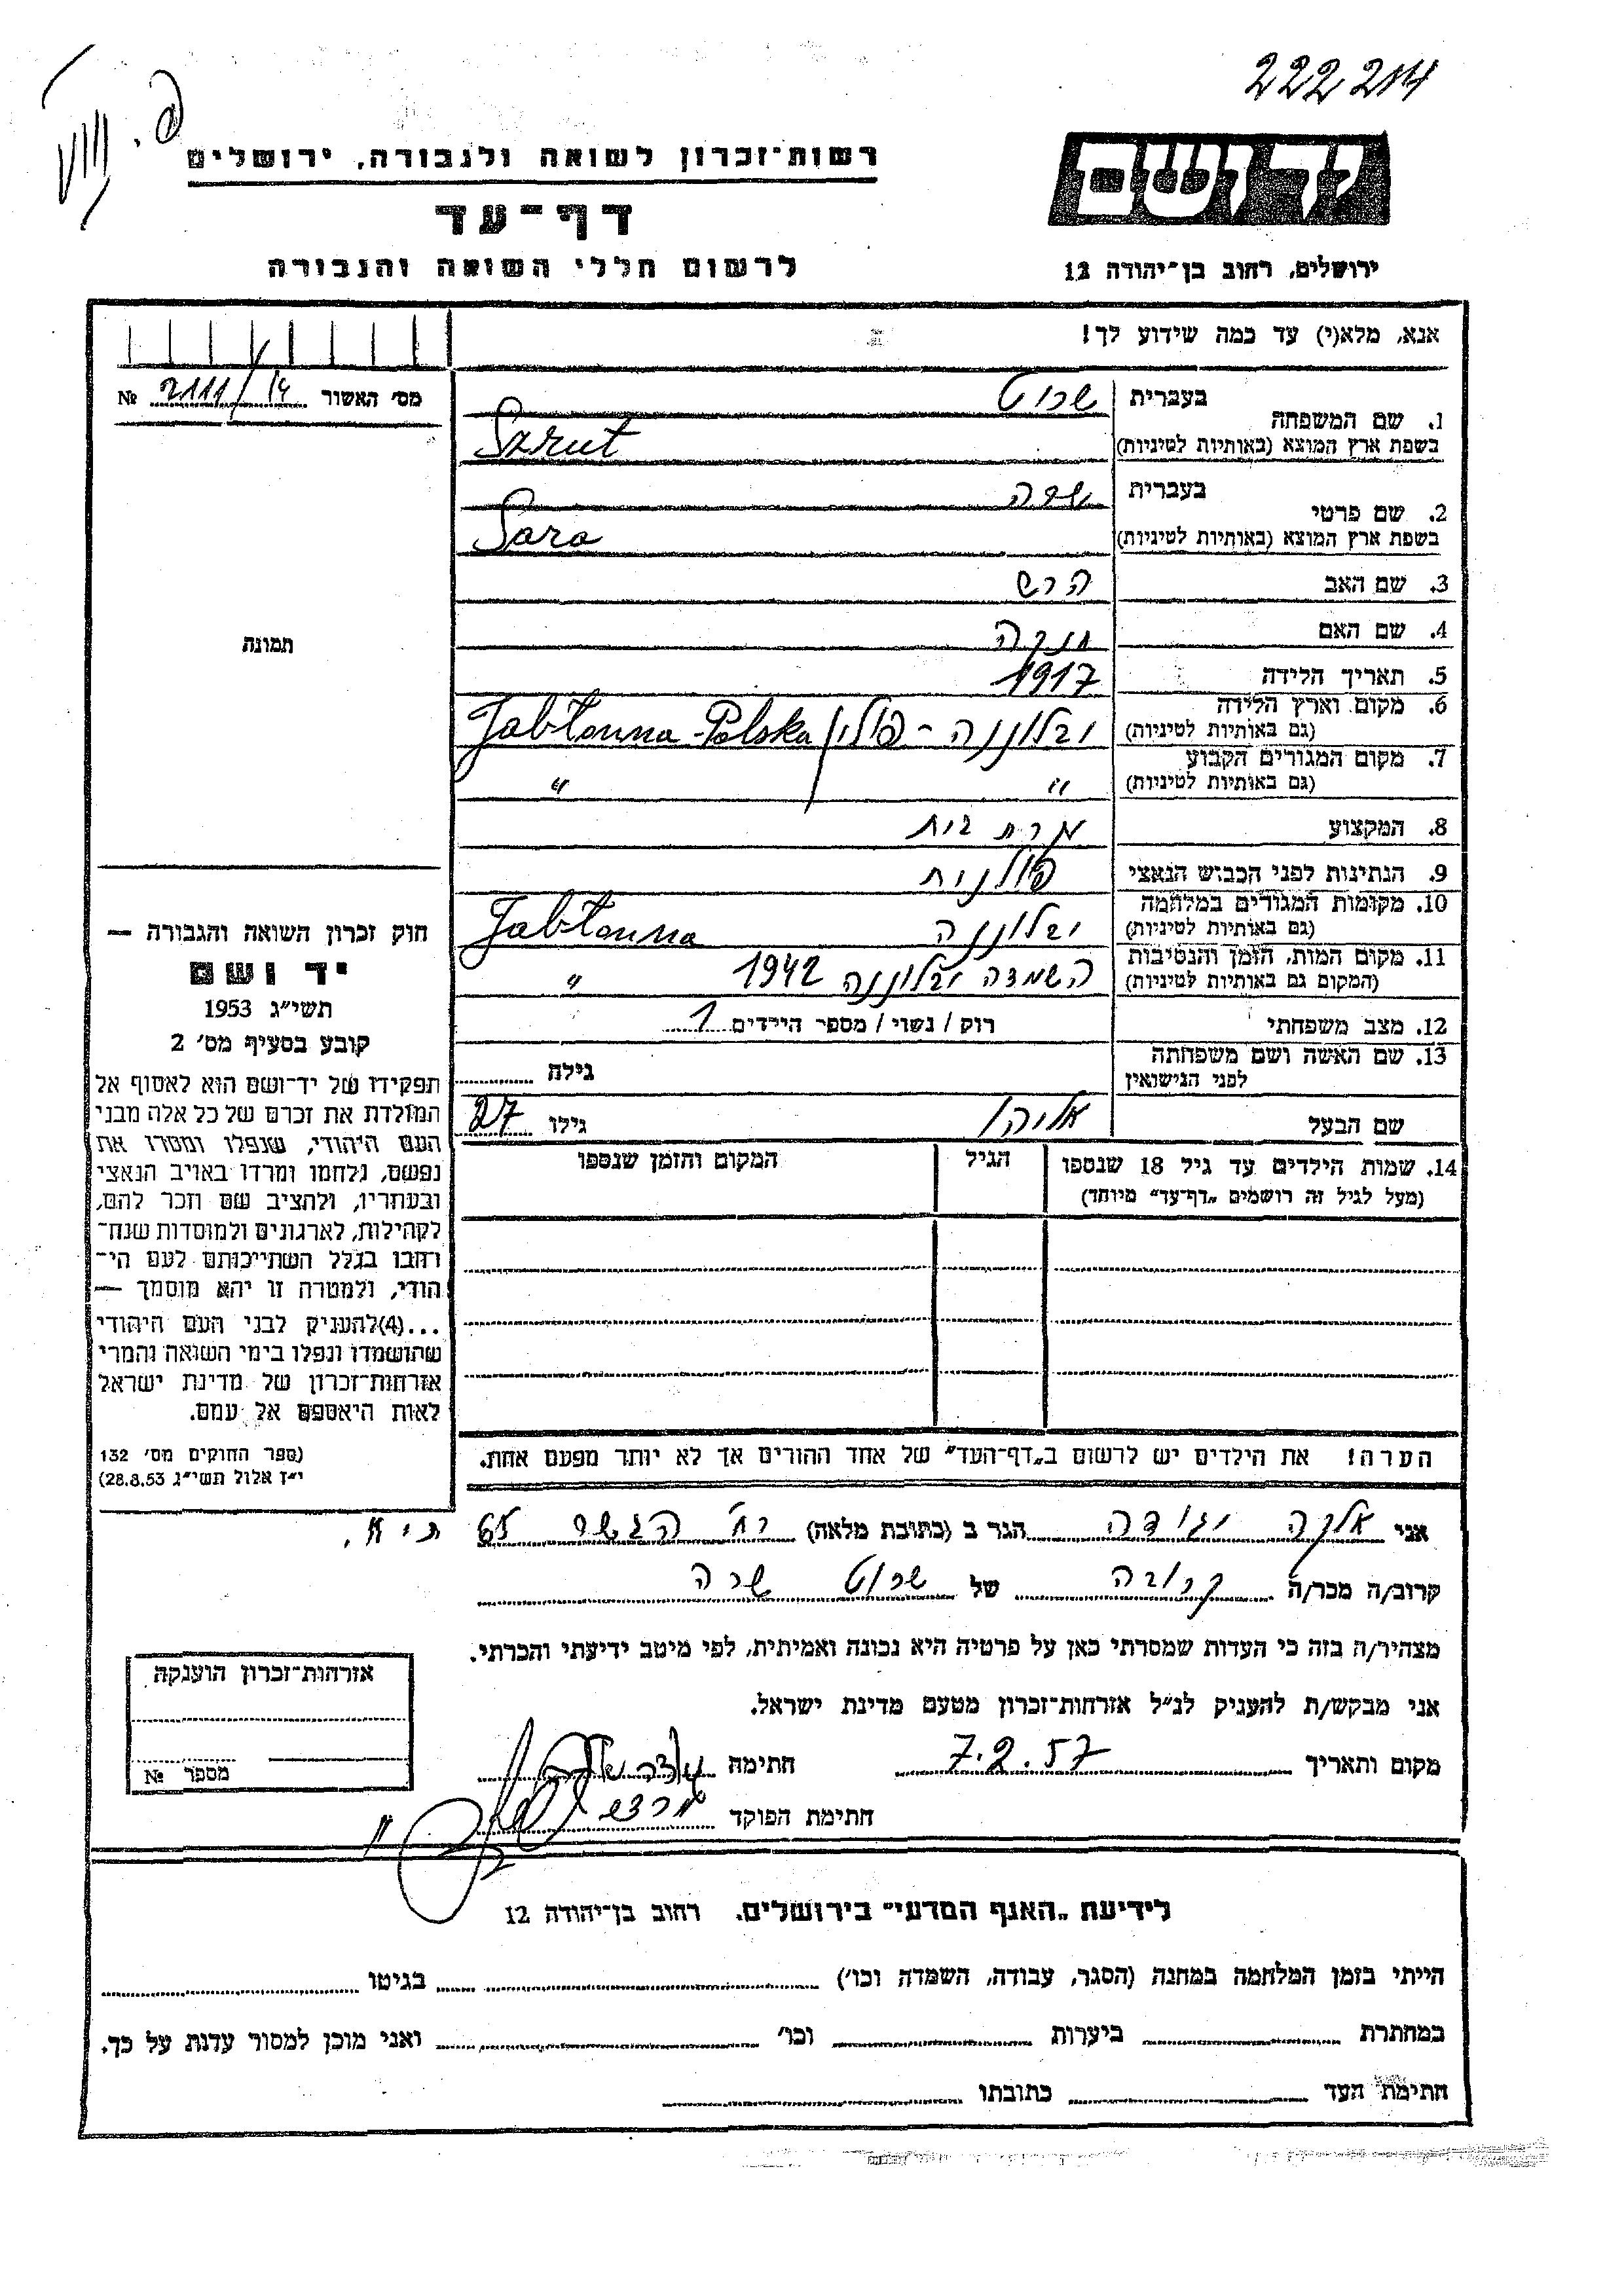 222214
רשות־זכרון לשואה ולגבורה, ירושלים
יד ושם
דף־עד
לרשום חללי השואה והגבורה
ירושלים, רחוב בן־יהודה 12
אנא, מלא(י) עד כמה שידוע לך!
מס׳ האשור 2111/14 №
1. שם המשפחה
בעברית שרוט
בשפת ארץ המוצא (באותיות לטיניות) Szrut
2. שם פרטי
בעברית שרה
בשפת ארץ המוצא (באותיות לטיניות) Sara
3. שם האב הרש
4. שם האם חנקה
5. תאריך הלידה 1917
6. מקום וארץ הלידה (גם באותיות לטיניות) יבלונה - פולין / Jabłonna - Polska
7. מקום המגורים הקבוע (גם באותיות לטיניות) " "
8. המקצוע עקרת בית
9. הנתינות לפני הכבוש הנאצי פולנית
10. מקומות המגורים במלחמה (גם באותיות לטיניות) יבלוננה Jabłonna
11. מקום המות, הזמן והנסיבות (המקום גם באותיות לטיניות) השמדה יבלוננה 1942 "
12. מצב משפחתי רוק / נשוי / מספר הילדים 1
13. שם האשה ושם משפחתה לפני הנישואין גילה
שם הבעל אליהו גילו 27
14. שמות הילדים עד גיל 18 שנספו (מעל לגיל זה רושמים „דף־עד" מיוחד) הגיל המקום והזמן שנספו
הערה! את הילדים יש לרשום ב„דף־העד" של אחד ההורים אך לא יותר מפעם אחת.
תמונה
חוק זכרון השואה והגבורה —
יד ושם
תשי״ג 1953
קובע בסעיף מס׳ 2
תפקידו של יד־ושם הוא לאסוף אל
המולדת את זכרם של כל אלה מבני
העם היהודי, שנפלו ומסרו את
נפשם, נלחמו ומרדו באויב הנאצי
ובעוזריו, ולהציב שם וזכר להם,
לקהילות, לארגונים ולמוסדות שנח־
רבו בגלל השתייכותם לעם הי־
הודי, ולמטרה זו יהא מוסמך —
...(4) להעניק לבני העם היהודי
שהושמדו ונפלו בימי השואה והמרי
אזרחות־זכרון של מדינת ישראל
לאות היאספם אל עמם.
(ספר החוקים מס׳ 132
י״ז אלול תשי״ג 28.8.53)
אני אלקה הגר ב (כתובת מלאה) רח׳ 65 ת״א.
קרוב/ה מכר/ה קרובה של שרוט שרה
מצהיר/ה בזה כי העדות שמסרתי כאן על פרטיה היא נכונה ואמיתית, לפי מיטב ידיעתי והכרתי.
אני מבקש/ת להעניק לנ״ל אזרחות־זכרון מטעם מדינת ישראל.
מקום ותאריך 7.2.57 חתימה
חתימת הפוקד
אזרחות־זכרון הוענקה
מספר №
לידיעת „האגף המדעי" בירושלים. רחוב בן־יהודה 12
הייתי בזמן המלחמה במחנה (הסגר, עבודה, השמדה וכו׳) בגיטו
במחתרת ביערות וכו׳ ואני מוכן למסור עדות על כך.
חתימת העד כתובתו